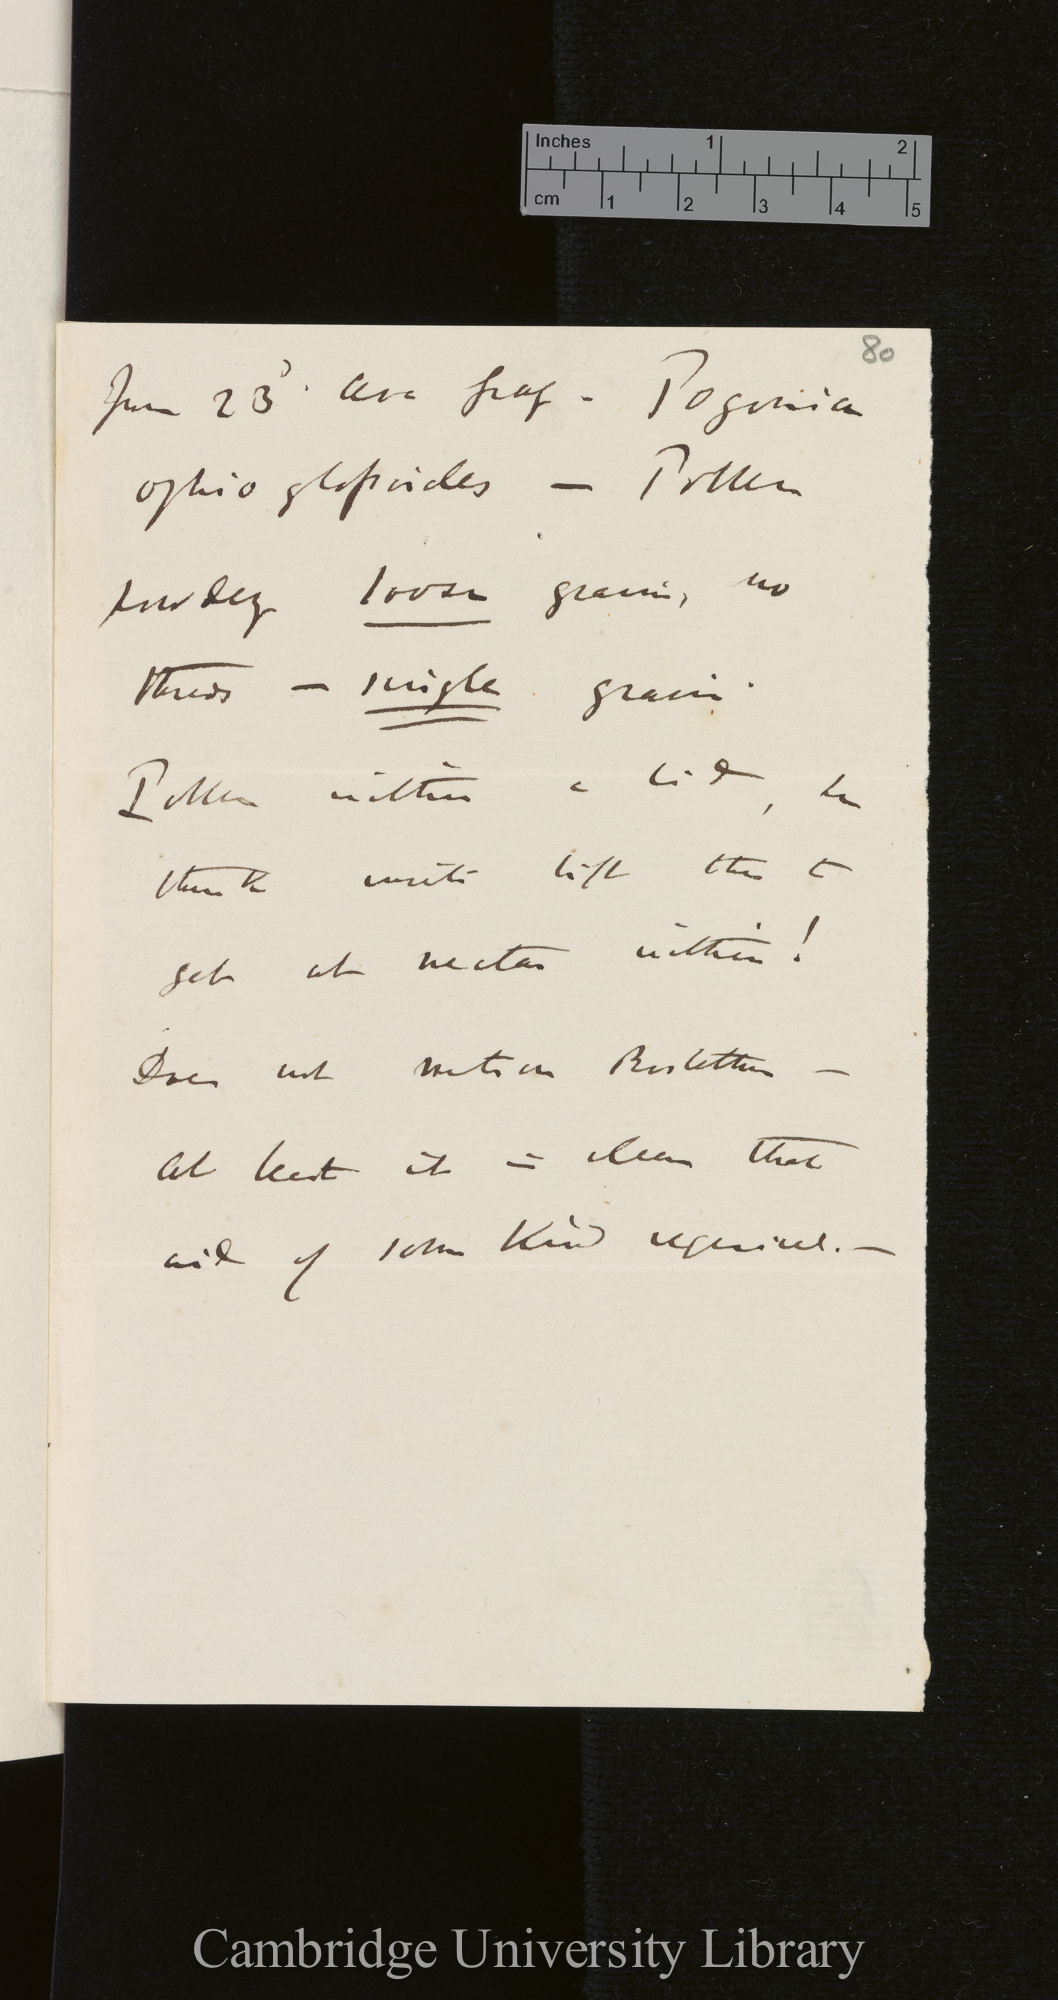 80
June 23d. Asa Gray — Pogonia
ophioglossoides — Pollen
powdery loose grains, no
threads — single grains.
Pollen within a lid, he
thinks insects lift this to
get at nectar within!
Does not mention Rostellum —
At least it is clear that
aid of some kind required. —
Inches 1 2
cm 1 2 3 4 5
Cambridge University Library